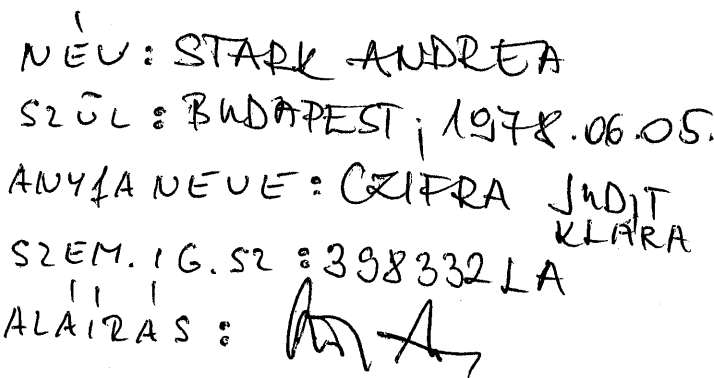 NÉV: STARK ANDREA
SZÜL: BUDAPEST, 1978.06.05.
ANYJA NEVE: CZIFRA JUDIT
KLÁRA
SZEM. IG. SZ: 398332LA
ALÁÍRÁS: